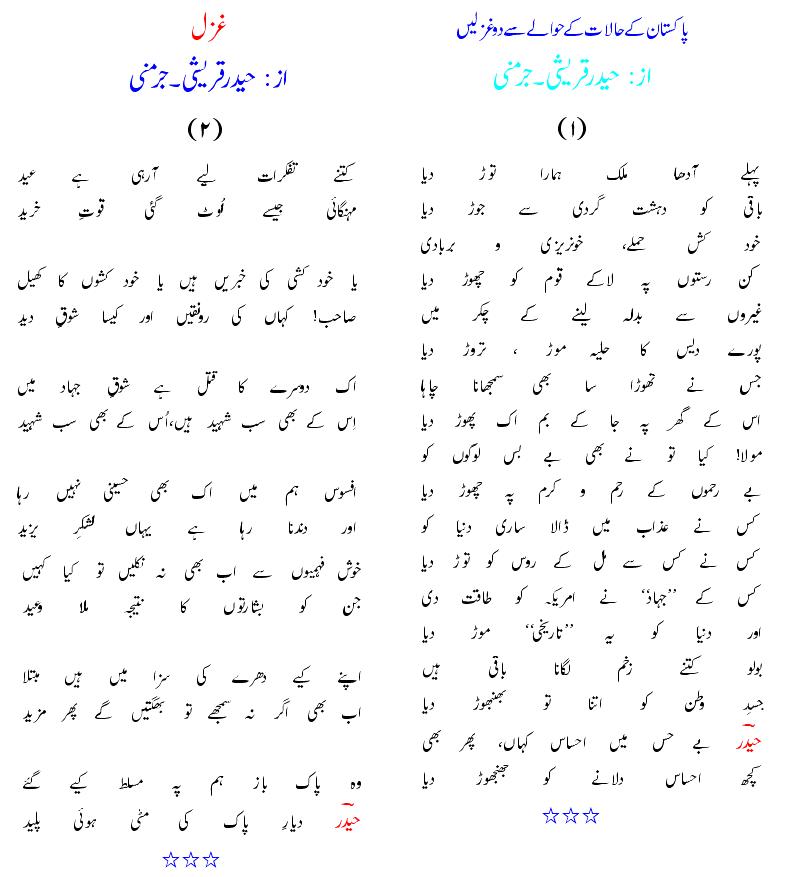 پاکستان کے حالات کے حوالے سے دو غزلیں
از: حیدر قریشی۔جرمنی
(۱)
پہلے آدھا ملک ہمارا توڑ دیا
باقی کو دہشت گردی سے جوڑ دیا
خود کش حملے، خونریزی و بربادی
کن رستوں پہ لاکے قوم کو چھوڑ دیا
غیروں سے بدلہ لینے کے چکر میں
پورے دیس کا حلیہ موڑ ، تروڑ دیا
جس نے تھوڑا سا بھی سمجھانا چاہا
اس کے گھر پہ جا کے بم اک پھوڑ دیا
مولا! کیا تو نے بھی بے بس لوگوں کو
بے رحموں کے رحم و کرم پہ چھوڑ دیا
کس نے عذاب میں ڈالا ساری دنیا کو
کس نے کس سے مل کے روس کو توڑ دیا
کس کے ’’جہاد‘‘ نے امریکہ کو طاقت دی
اور دنیا کو یہ ’’تاریخی‘‘ موڑ دیا
بولو کتنے زخم لگانا باقی ہیں
جسدِ وطن کو اتنا تو بھنبھوڑ دیا
حیدرؔ بے حس میں احساس کہاں، پھر بھی
کچھ احساس دلانے کو جھنجھوڑ دیا
☆☆☆
غزل
از: حیدر قریشی۔جرمنی
(۲)
کتنے تفکرات لیے آرہی ہے عید
مہنگائی جیسے لُوٹ گئی قوتِ خرید
یا خود کشی کی خبریں ہیں یا خود کشوں کا کھیل
صاحب! کہاں کی رونقیں اور کیسا شوقِ دید
اک دوسرے کا قتل ہے شوقِ جہاد میں
اِس کے بھی سب شہید ہیں،اُس کے بھی سب شہید
افسوس ہم میں اک بھی حسینی نہیں رہا
اور دندنا رہا ہے یہاں لشکرِ یزید
خوش فہمیوں سے اب بھی نہ نکلیں تو کیا کہیں
جن کو بشارتوں کا نتیجہ ملا وعید
اپنے کیے دھرے کی سزا میں ہیں مبتلا
اب بھی اگر نہ سمجھے تو بھگتیں گے پھر مزید
وہ پاک باز ہم پہ مسلط کیے گئے
حیدرؔ دیارِ پاک کی مٹی ہوئی پلید
☆☆☆